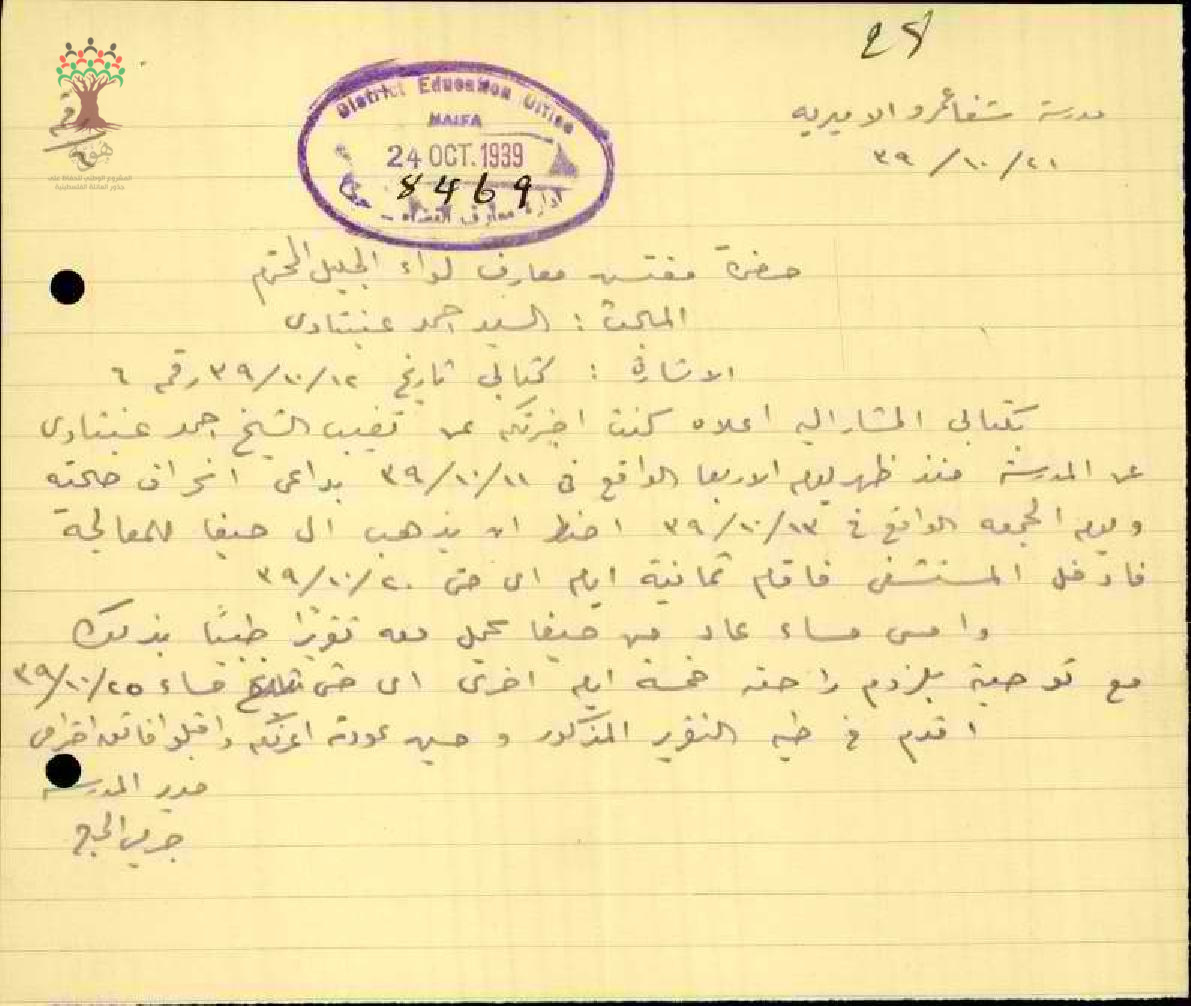 28
مدرسة شفاعمرو الاميريه
٢١/ ١٠/ ٣٩
رقم
هوية
المشروع الوطني للحفاظ على
جذور العائلة الفلسطينية
District Education Office
HAIFA
24 OCT. 1939
8469
ادارة معارف القضاء - حيفا
حضرة مفتش معارف لواء الجليل المحترم
المبحث : السيد احمد عنبتاوى
الاشارة : كتابي تاريخ ١٢/ ١٠/ ٣٩ رقم ٦
بكتابى المشار اليه اعلاه كنت اخبرتكم عن تغيب الشيخ احمد عنبتاوى
عن المدرسة منذ ظهر يوم الاربعا الواقع فى ١١/ ١٠/ ٣٩ بداعى انحراف صحته
ويوم الجمعه الواقع في ١٣/ ١٠/ ٣٩ اضطر ان يذهب الى حيفا للمعالجة
فادخل المستشفى فاقام ثمانية ايام اى حتى ٢٠/ ١٠/ ٣٩
وامس مساء عاد من حيفا يحمل معه تقريرا طبيا بذلك
مع توصية بلزوم راحته خمسة ايام اخرى اى حتى مساء ٢٥/ ١٠/ ٣٩
اقدم في طيه التقرير المذكور وحين عودته اعرفكم واقبلوا فائق احترامى
مدير المدرسة